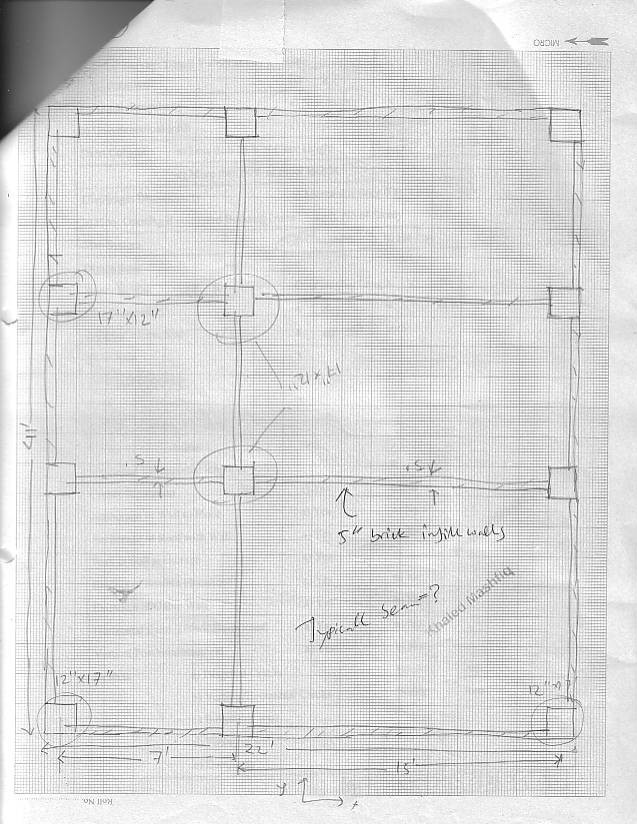 MICRO
17"x12"
17"x12"
41'
.5'
.5'
5" brick infill walls
Typical beam=?
Khaled Mashfiq
12"x17"
22'
7'
15'
y
x
Roll No.